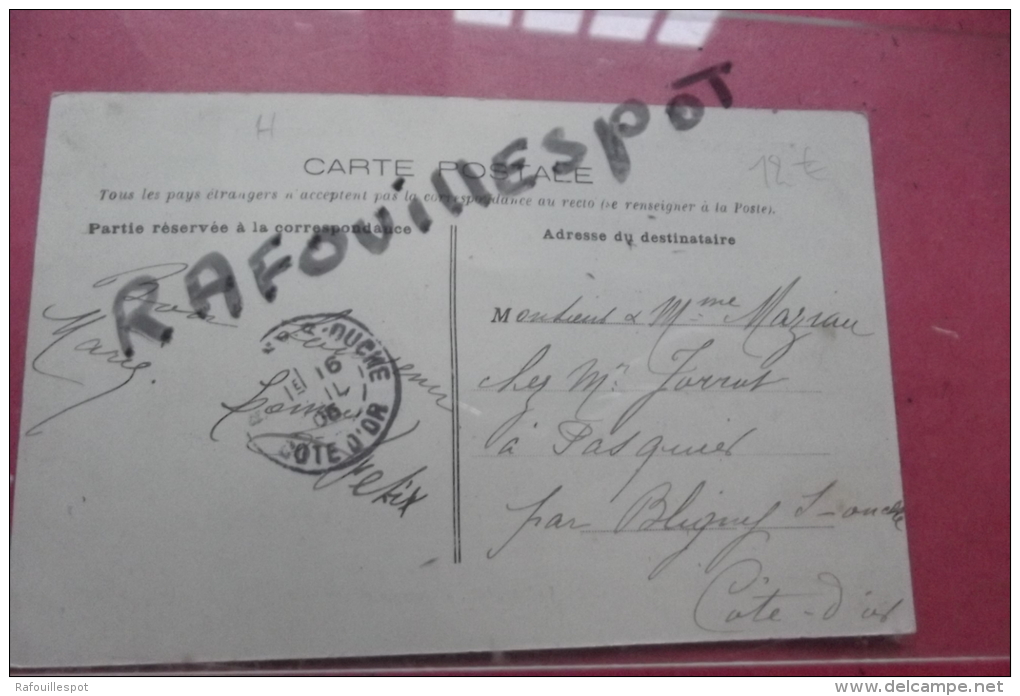 H
12 €
CARTE POSTALE
RAFOUillESPOT
Tous les pays étrangers n'acceptent pas la correspondance au recto (se renseigner à la Poste).
Partie réservée à la correspondance
Bon
Marie.
OUCHE
16
11
06
COTE D'OR
Felix
Adresse du destinataire
Monsieur & Mme Mazeau
chez Mr Jorrot
à Pasquier
par Bligny S-ouche
Côte-d'or
Rafouillespot
www.delcampe.net